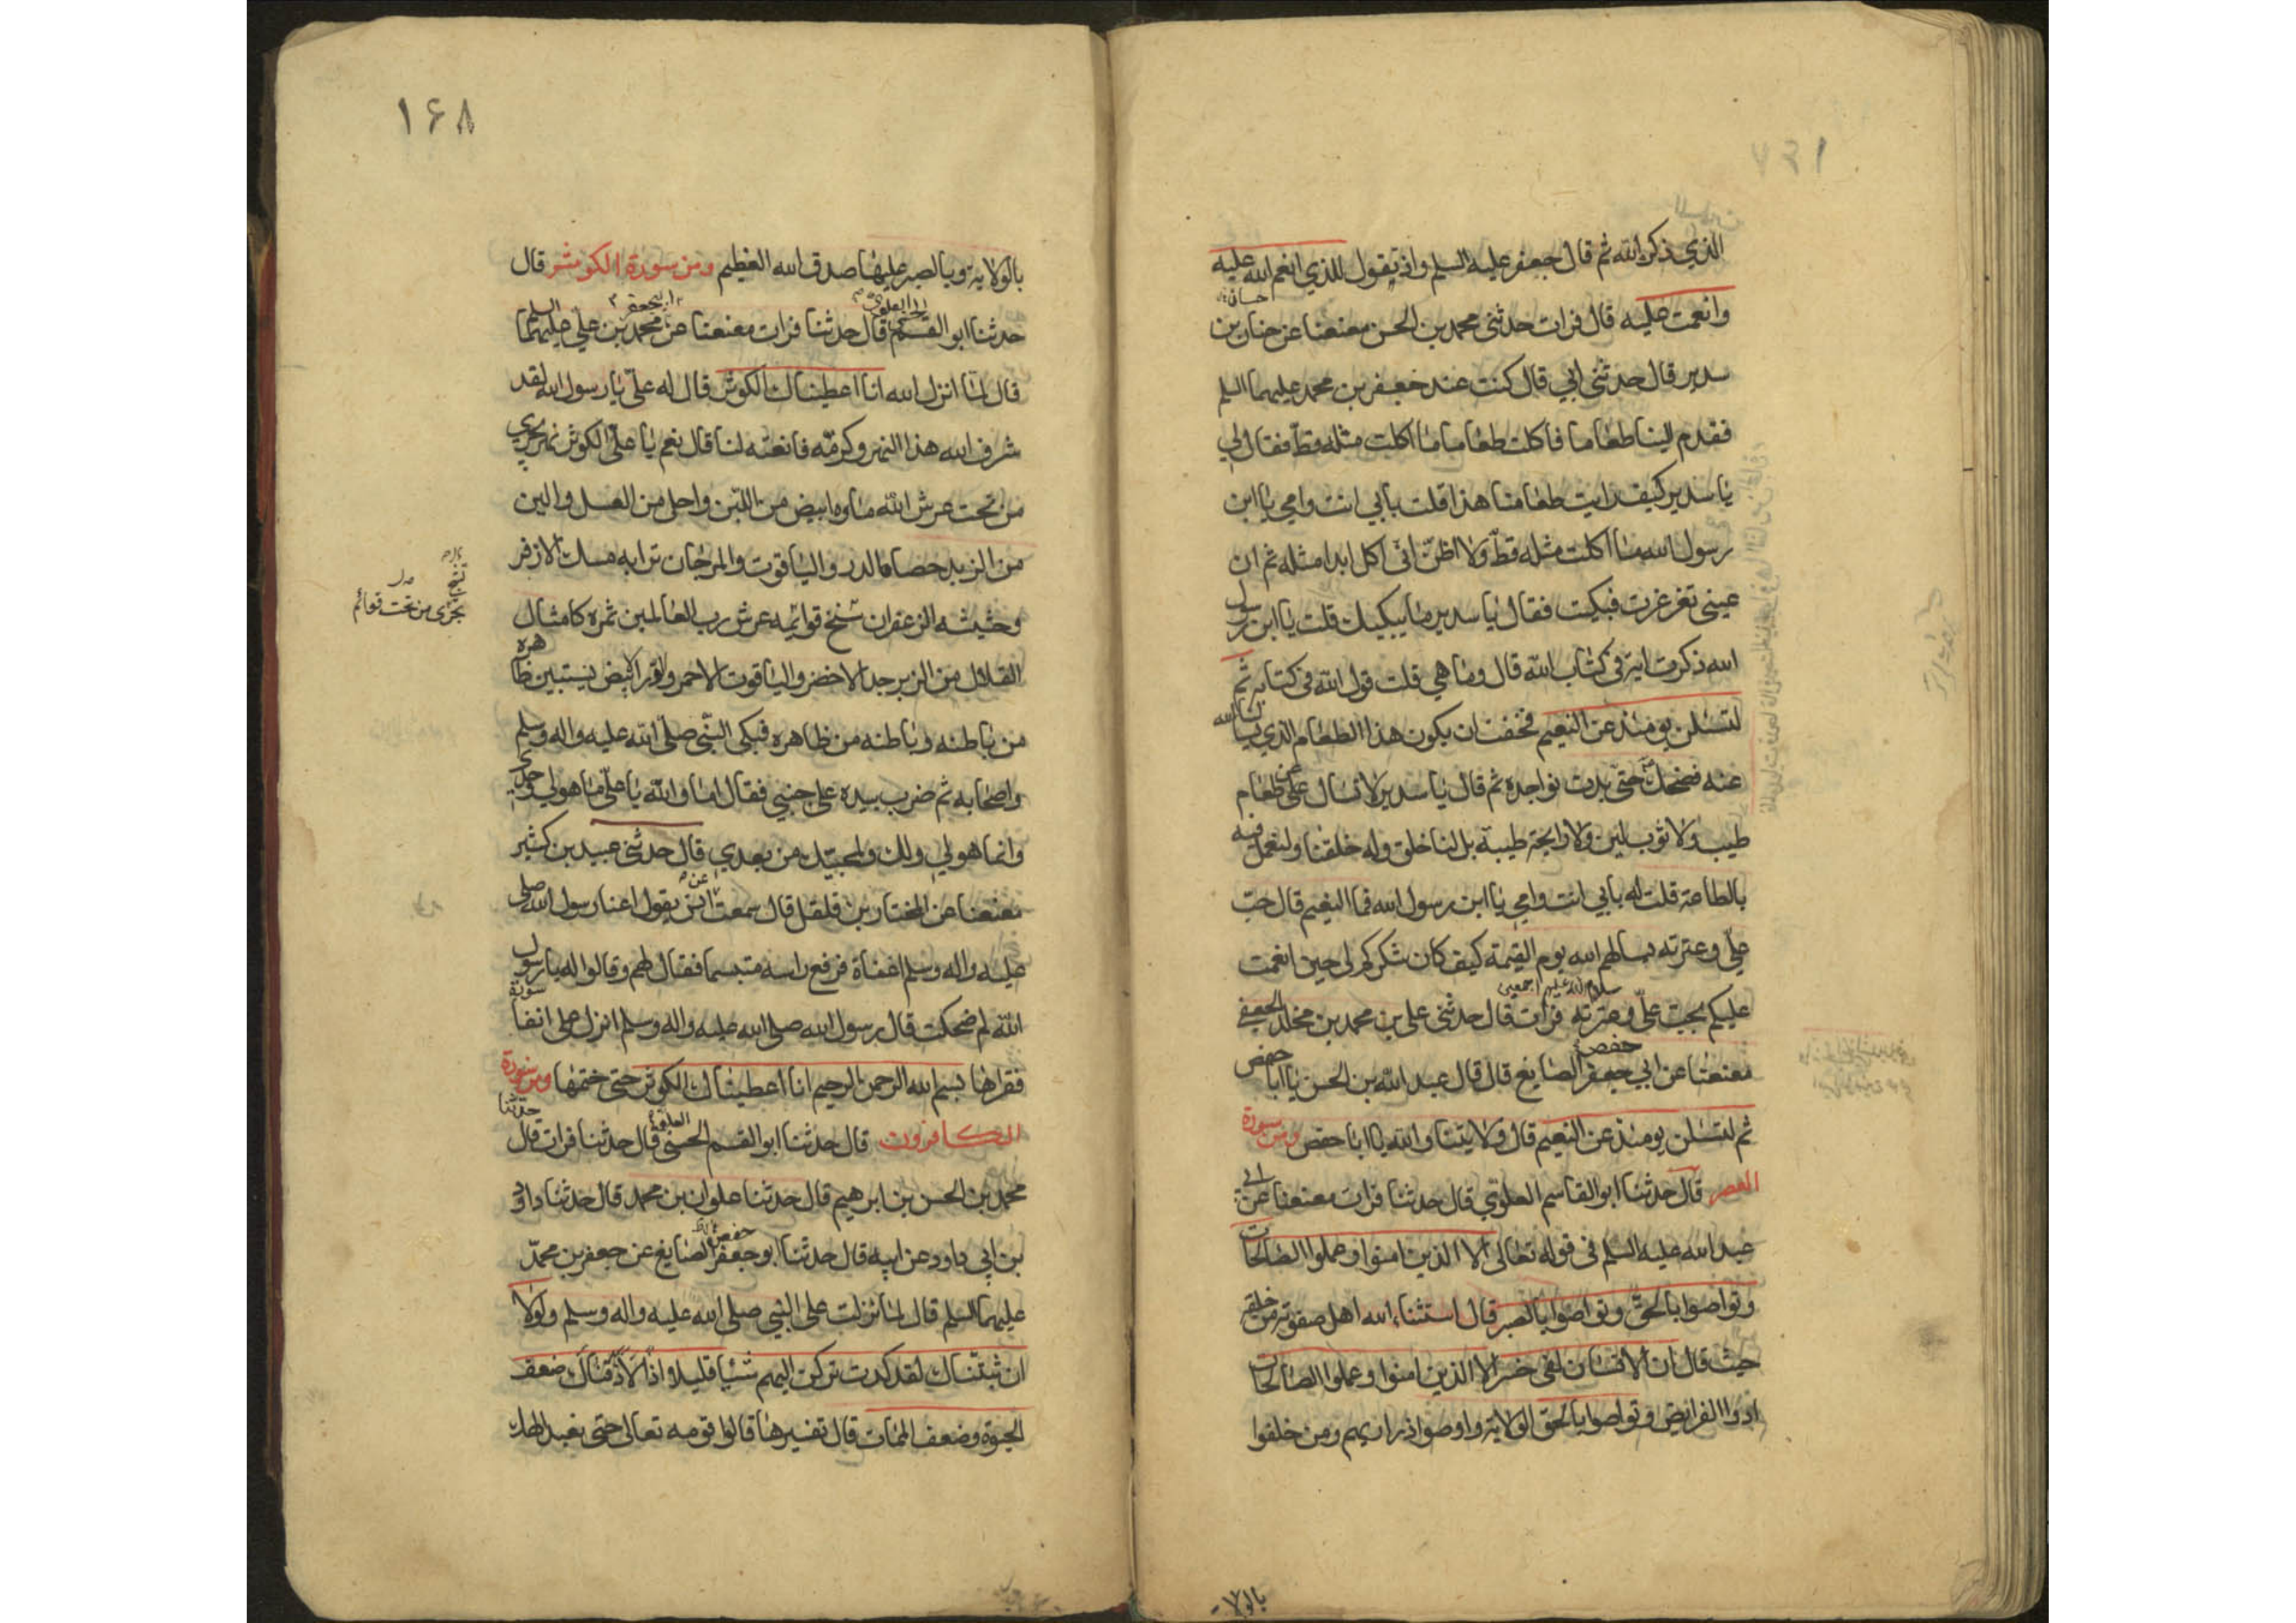 الذي ذكر الله ثم قال جعفر عليه السلم واذ تقول للذي انعم الله عليه
وانعمت عليه قال فرات حدثني محمد بن الحسن معنعنا عن حنان بن
سدير قال حدثني ابي قال كنت عند جعفر بن محمد عليهما السلم
فقدم الينا طعاما فاكلت طعاما ما اكلت مثله قط فقال لي
يا سدير كيف رايت طعامنا هذا قلت بابي انت وامي يا ابن
رسول الله ما اكلت مثله قط ولا اظن اني اكل ابدا مثله ثم ان
عيني تغرغرت فبكيت فقال يا سدير ما يبكيك قلت يا ابن رسول
الله ذكرت اية في كتاب الله قال وما هي قلت قول الله في كتابه ثم
لتسئلن يومئذ عن النعيم فخفت ان يكون هذا الطعام الذي يسألنا الله
عنه فضحك حتى بدت نواجده ثم قال يا سدير لا تسال عن طعام
طيب ولا ثوب لين ولا رايحة طيبة بل لنا خلق وله خلقنا ولنعمل فيه
بالطاعة قلت له بابي انت وامي يا ابن رسول الله فما النعيم قال حب
علي وعترته يسالهم الله يوم القيمة كيف كان شكركم لي حين انعمت
سلام الله عليهم اجمعين
عليكم بحب علي وعترته فرات قال حدثني علي بن محمد بن مخلد الجعفي
حفص
معنعنا عن ابي جعفر الصايغ قال قال عبد الله بن الحسن يا ابا حفص
ثم لتسئلن يومئذ عن النعيم قال ولايتنا والله يا ابا حفص ومن سورة
العصر قال حدثنا ابو القاسم العلوي قال حدثنا فرات معنعنا عن ابي
عبد الله عليه السلم في قوله تعالى الا الذين امنوا وعملوا الصالحات
وتواصوا بالحق وتواصوا بالصبر قال استثناء الله اهل صفوته من خلقه
حيث قال ان الانسان لفي خسر الا الذين امنوا وعملوا الصالحات
ادوا الفرايض وتواصوا بالحق الولاية واوصوا ذراريهم ومن خلفوا
بالولاية
۱۶۸
بالولاية وبالصبر عليها صدق الله العظيم ومن سورة الكوثر قال
العلوي
حدثنا ابو القسم قال حدثنا فرات معنعنا عن محمد بن علي عليهما السلم
قال لما انزل الله انا اعطيناك الكوثر قال له علي يا رسول الله لقد
شرف الله هذا النهر وكرمه فانعته لنا قال نعم يا علي الكوثر نهر يجري
من تحت عرش الله ماوه ابيض من اللبن واحلى من العسل والين
من الزبد حصاه الدر والياقوت والمرجان ترابه مسك الاذفر
وحشيشه الزعفران سنخ قوائمه عرش رب العالمين ثمره كامثال
يجرى من تحت قوائم
القلال من الزبرجد الاخضر والياقوت الاحمر والدر الابيض يستبين ظاهره
من باطنه وباطنه من ظاهره فبكى النبي صلى الله عليه واله وسلم
واصحابه ثم ضرب بيده على جنبي فقال اما والله يا علي ما هو لي وحدي
وانما هو لي ولك ولمحبيك من بعدي قال حدثني عبيد بن كثير
معنعنا عن المختار بن فلفل قال سمعت انس يقول اغفا رسول الله صلى
عليه واله وسلم اغفاة فرفع راسه متبسما فقال لهم وقالوا له يا رسول
الله لم ضحكت قال رسول الله صلى الله عليه واله وسلم انزل علي انفا سورة
فقراها بسم الله الرحمن الرحيم انا اعطيناك الكوثر حتى ختمها ومن سورة
الكافرون قال حدثنا ابو القسم الحسني قال حدثنا فرات قال حدثنا
العلوي
محمد بن الحسن بن ابرهيم قال حدثنا علوان بن محمد قال حدثنا داود
بن ابي داود عن ابيه قال حدثنا ابو جعفر الصايغ عن جعفر بن محمد
حفص
عليهما السلم قال لما نزلت على النبي صلى الله عليه واله وسلم ولولا
ان ثبتناك لقد كدت تركن اليهم شيئا قليلا اذا لاذقناك ضعف
الحيوة وضعف الممات قال تفسيرها قالوا قومه تعالى حتى نعبد الهك